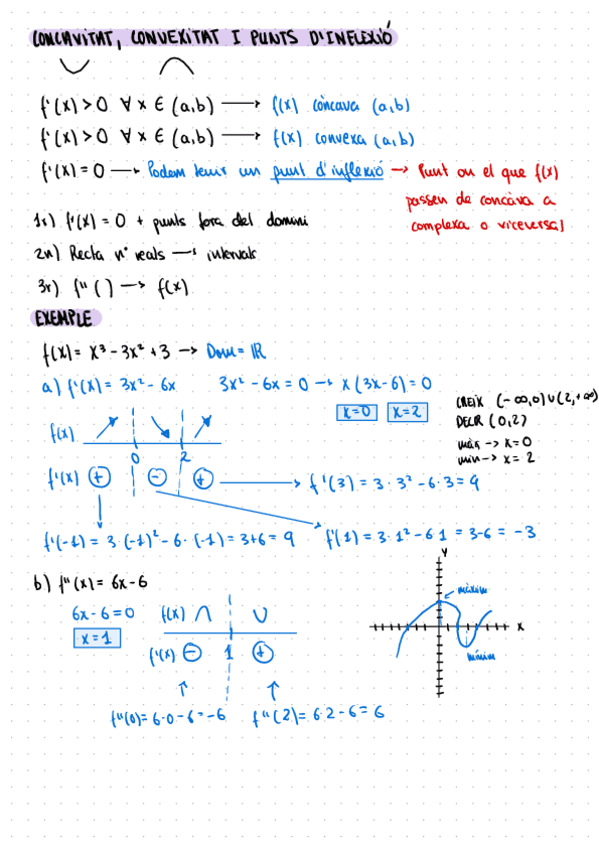 CONCAVITAT, CONVEXITAT I PUNTS D'INFLEXIÓ
f'(x) > 0 ∀ x ∈ (a,b) → f(x) còncava (a,b)
f'(x) > 0 ∀ x ∈ (a,b) → f(x) convexa (a,b)
f'(x) = 0 → Podem tenir un punt d'inflexió → Punt on el que f(x)
passen de concàva a
complexa o viceversa]
1r) f'(x) = 0 + punts fora del domini
2n) Recta nº reals → intervals
3r) f''( ) → f(x)
EXEMPLE
f(x) = x³ - 3x² + 3 → Dom = ℝ
a) f'(x) = 3x² - 6x 3x² - 6x = 0 → x(3x-6) = 0
x=0 x=2
CREIX (-∞,0)∪(2,+∞)
DECR (0,2)
màx → x=0
min → x=2
f(x)
0 2
f'(x) + - + → f'(3) = 3·3² - 6·3 = 9
f'(-1) = 3·(-1)² - 6·(-1) = 3+6 = 9 f'(1) = 3·1² - 6·1 = 3-6 = -3
b) f''(x) = 6x - 6
6x - 6 = 0 f(x) ∩ ∪
x=1
f'(x) - 1 +
f''(0) = 6·0 - 6 = -6 f''(2) = 6·2 - 6 = 6
y
màxim
x
mínim